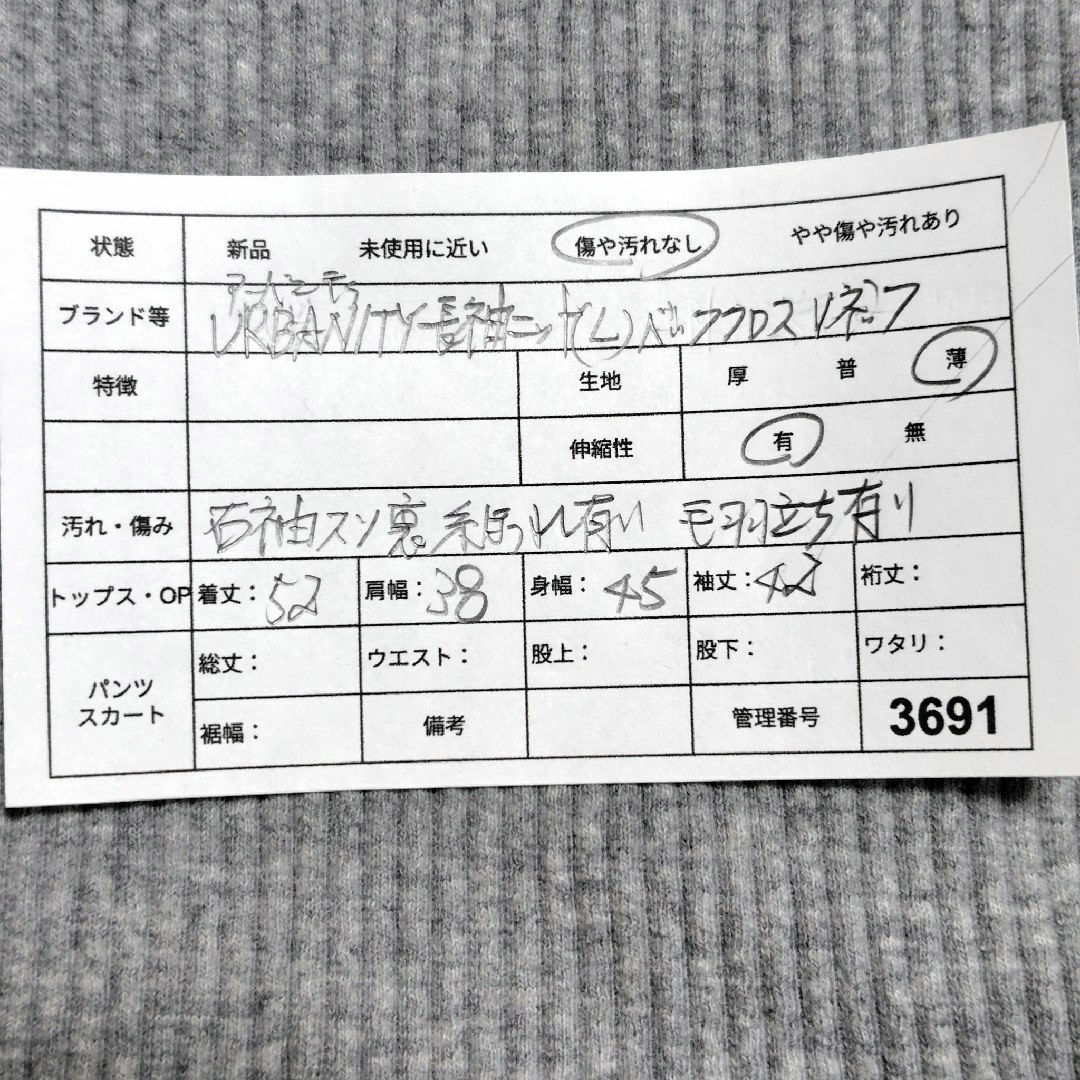 状態 新品 未使用に近い 傷や汚れなし やや傷や汚れあり
アーバニティ
ブランド等 URBANITY 長袖ニット(L) クロス Vネック
特徴 生地 厚 普 薄
伸縮性 有 無
汚れ・傷み 右袖スソ裏糸ほつれ有り 毛羽立ち有り
トップス・OP 着丈: 52 肩幅: 38 身幅: 45 袖丈: 42 裄丈:
パンツ スカート 総丈: ウエスト: 股上: 股下: ワタリ:
裾幅: 備考 管理番号 3691